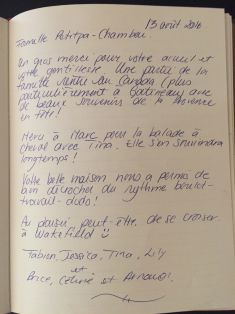 13 août 2016
Famille Petitpa-Chambeu.
Un gros merci pour votre accueil et
votre gentillesse. Une partie de la
famille rentre au Canada (plus
particulièrement à Gatineau) avec
de beaux souvenirs de la Provence
en tête!
Merci à Marc pour la balade à
cheval avec Tina. Elle s'en souviendra
longtemps!
Votre belle maison nous a permis de
bien décrocher du rythme boulot-
travail-dodo!
Au plaisir, peut-être, de se croiser
à Wakefield
Fabien, Jessica, Tina, Lily
et
Brice, Céline et Arnaud.